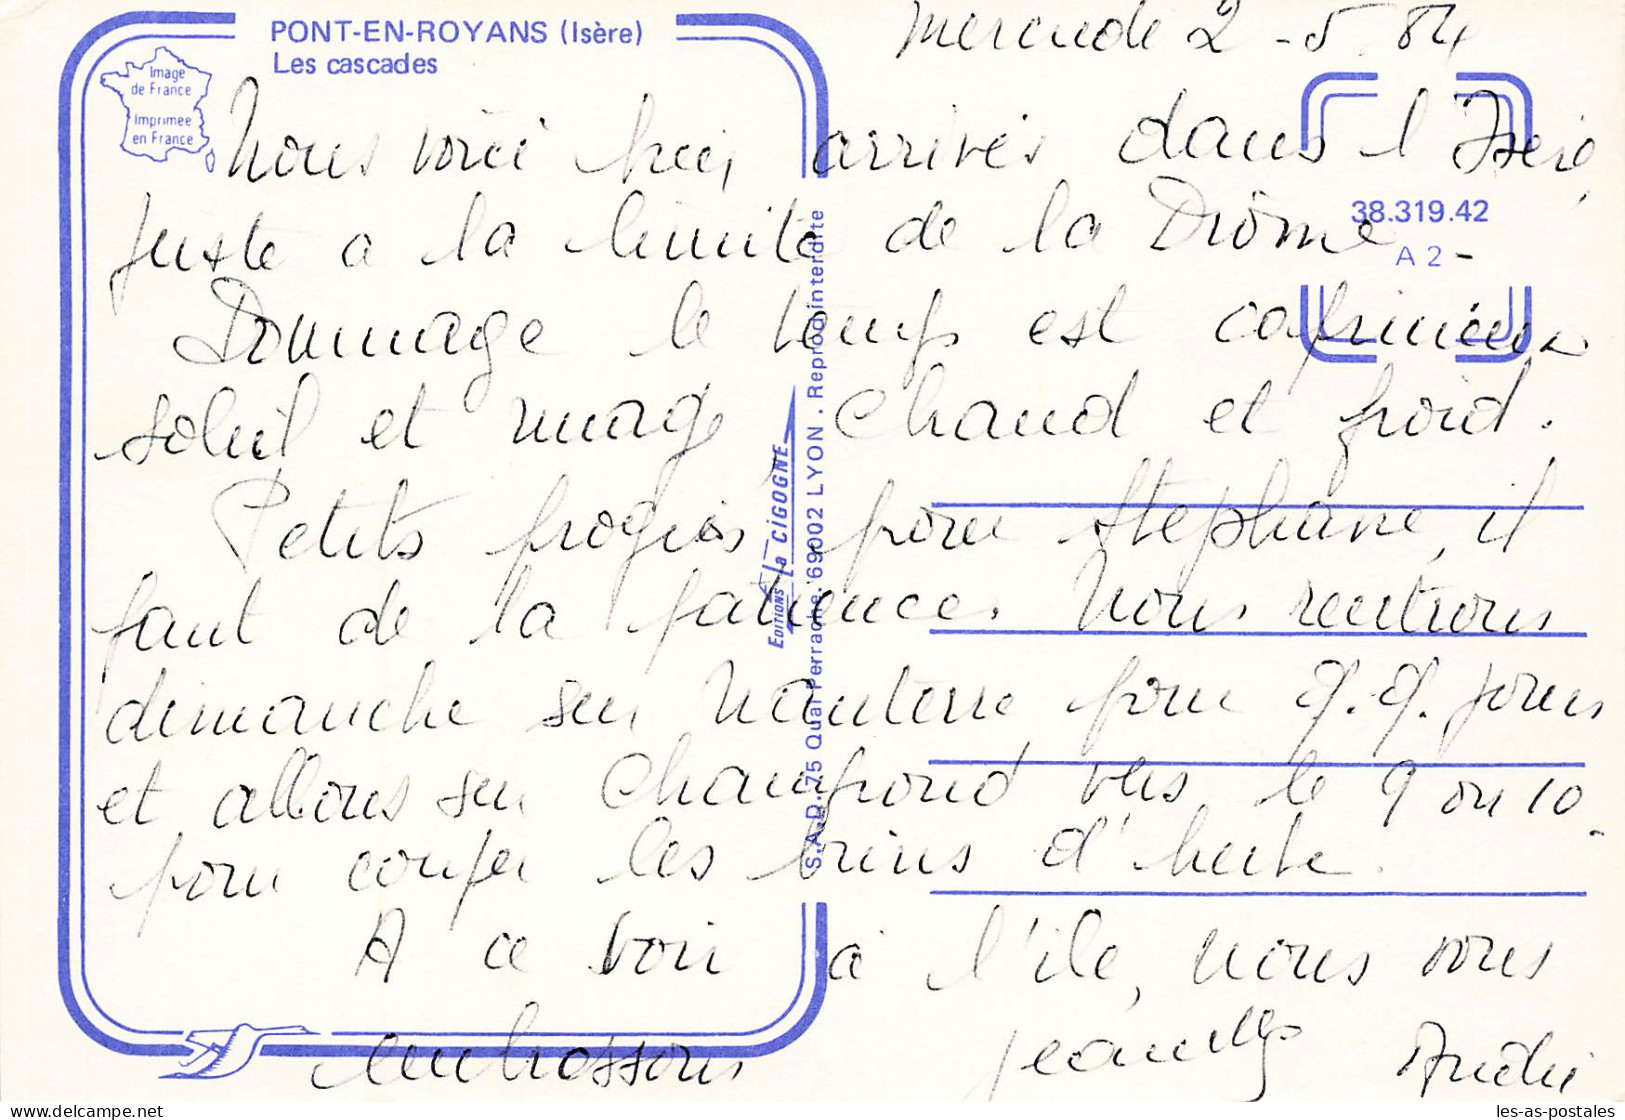 PONT-EN-ROYANS (Isère)
Les cascades
Image
de France
Imprimée
en France
Mercredi 2-5.84
Nous voici bien arrivés dans l'Isère
juste a la limite de la Drôme -
38.319.42
A 2
Dommage le temps est capricieux
soleil et nuage chaud et froid.
Petits progrès pour Stephane, il
faut de la patience. Nous rentrons
dimanche sur Nanterre pour q.q. jours
et allons sur Champrond vers le 9 ou 10
pour couper les brins d'herbe.
A ce voir à l'ile, nous vous
embrassons
Jeanne André
EDITIONS La CIGOGNE
S.A.D. 75 Quai Perrache. 69002 LYON . Reprod interdite
les-as-postales